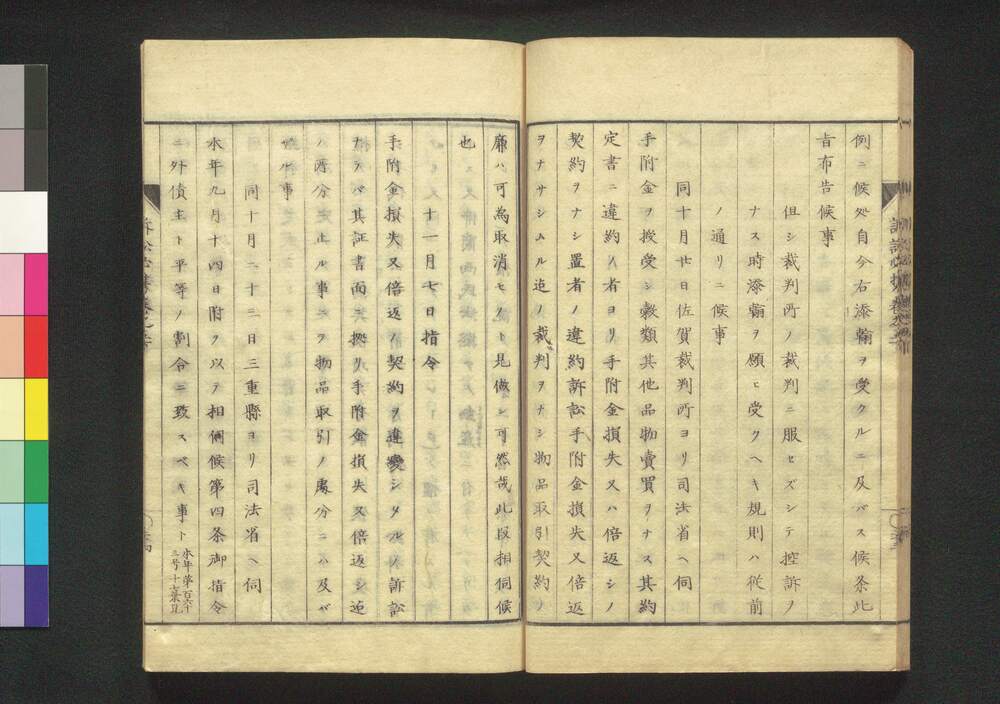 例ニ候処自今右添翰ヲ受クルニ及バス候条此
旨布告候事
但シ裁判所ノ裁判ニ服セズシテ控訴ノ
ナス時添翰ヲ願ヒ受クヘキ規則ハ従前
ノ通リニ候事
同十月廿日佐賀裁判所ヨリ司法省ヘ伺
手附金ヲ授受シ穀類其他品物賣買ヲナス其約
定書ニ違約ノ者ヨリ手附金損失又ハ倍返シノ
契約ヲナシ置者ノ違約訴訟手附金損失又倍返
ヲナサシムル迠ノ裁判ヲナシ物品取引契約ノ
廉ハ可為取消モノト見做シ可然哉此段相伺候
也
十一月七日指令
手附金損失又倍返ノ契約ヲ違変シタルノ訴訟
ナラバ其証書面ニ拠リ手附金損失又倍返シ迠
ハ處分定止ル事ニテ物品取引ノ處分ニハ及バ
サル事
同十月二十三日三重縣ヨリ司法省ヘ伺
本年九月十四日附ヲ以テ相伺候第四条御指令
ニ外債主ト平等ノ割合ニ致スベキ事ト
本年第百六十
三号十七葉見